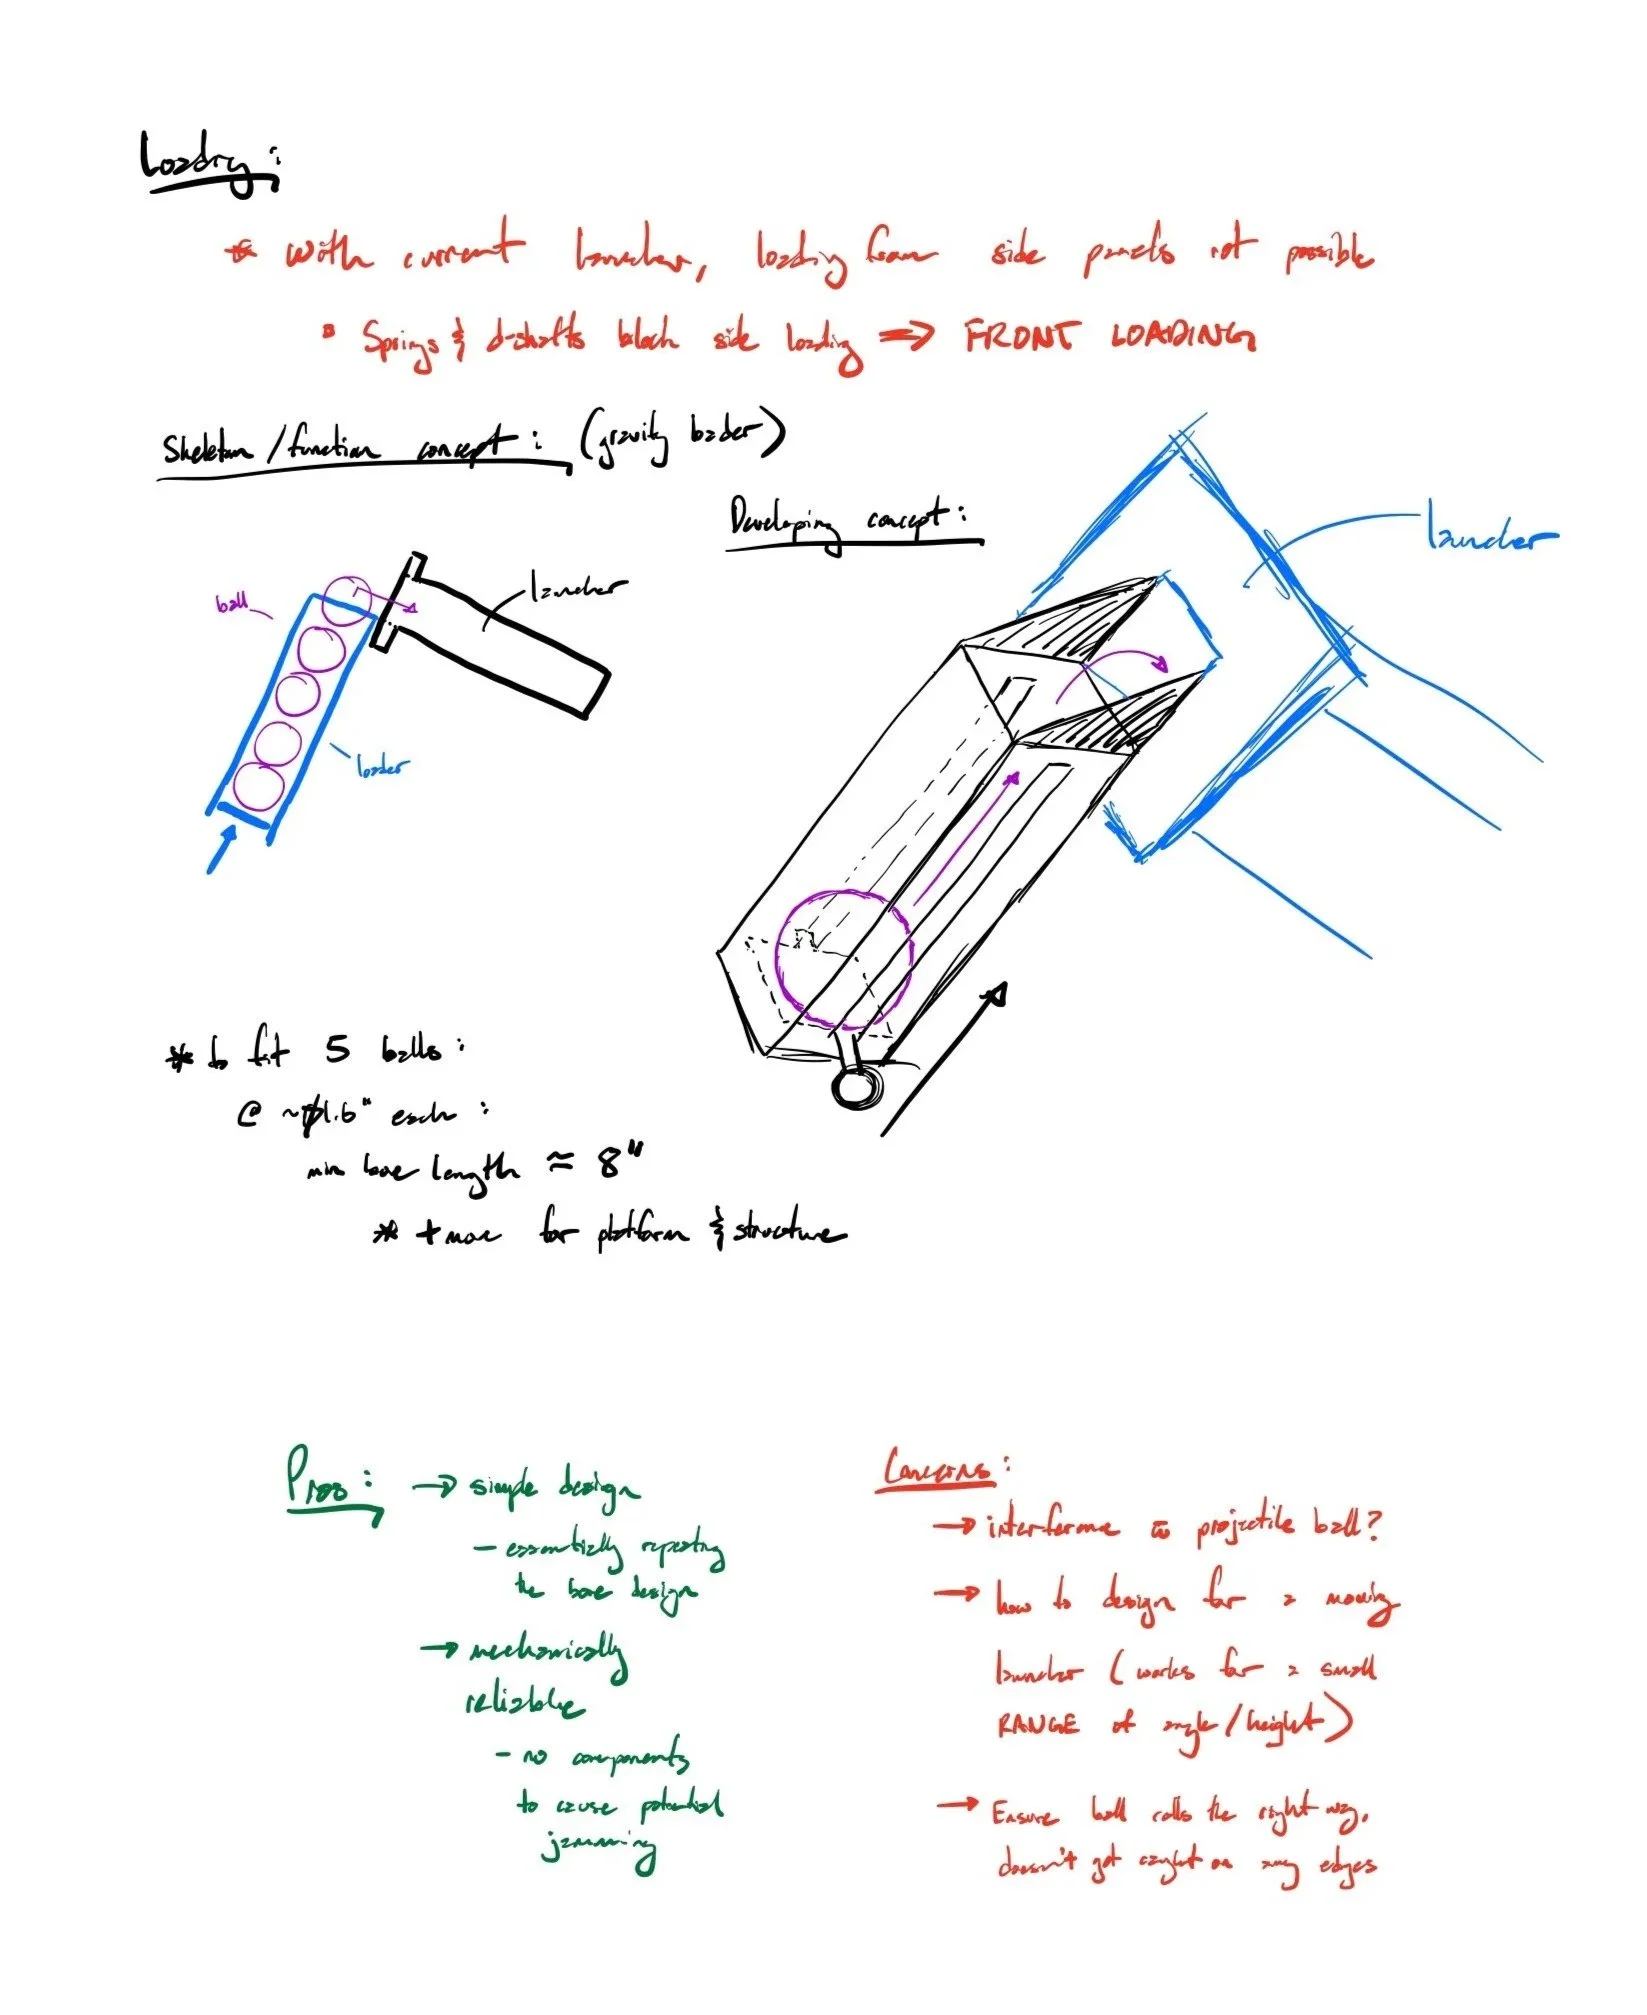 Loading:
* with current launcher, loading from side panels not possible
▫ Springs & d-shafts block side loading ⇒ FRONT LOADING
Skeleton / function concept: (gravity loader)
Developing concept:
launcher
ball
launcher
loader
* to fit 5 balls:
@ ~⌀1.6" each:
min bore length ≈ 8"
* + more for platform & structure
Pros: → simple design
- essentially repeating
the bore design
→ mechanically
reliable
- no components
to cause potential
jamming
Concerns:
→ interference w projectile ball?
→ how to design for a moving
launcher (works for a small
RANGE of angle/height)
→ Ensure ball rolls the right way,
doesn't get caught on any edges